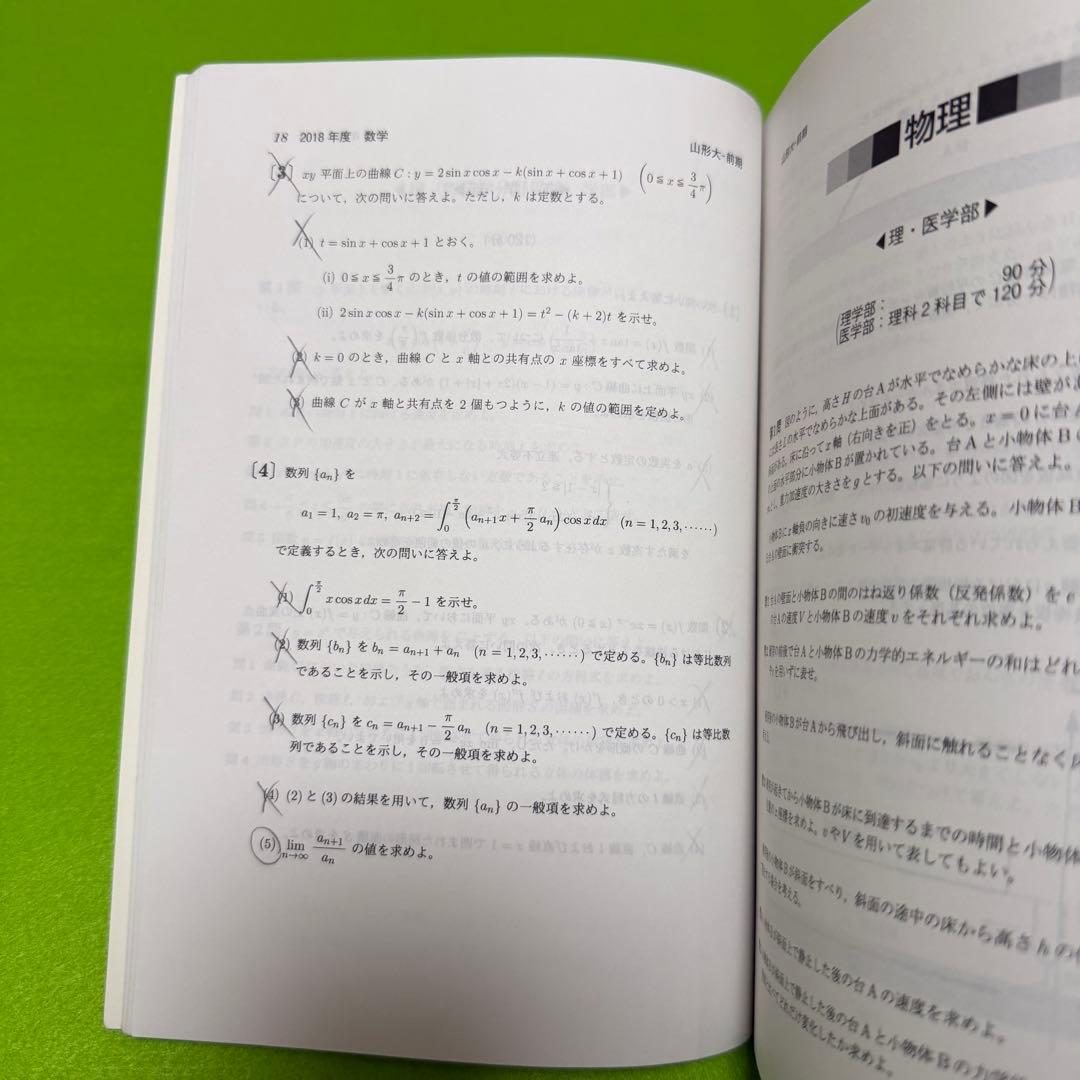 18 2018年度 数学
山形大-前期
〔3〕 xy平面上の曲線C:y=2sin x cos x−k(sin x+cos x+1) (0≦x≦3/4π)
について,次の問いに答えよ。ただし,kは定数とする。
(1) t=sin x+cos x+1とおく。
(i) 0≦x≦3/4πのとき,tの値の範囲を求めよ。
(ii) 2sin x cos x−k(sin x+cos x+1)=t²−(k+2)tを示せ。
(2) k=0のとき,曲線Cとx軸との共有点のx座標をすべて求めよ。
(3) 曲線Cがx軸と共有点を2個もつように,kの値の範囲を定めよ。
〔4〕 数列{aₙ}を
a₁=1, a₂=π, aₙ₊₂=∫₀^{π/2}(aₙ₊₁x+π/2 aₙ)cos x dx (n=1,2,3,……)
で定義するとき,次の問いに答えよ。
(1) ∫₀^{π/2} x cos x dx=π/2−1を示せ。
(2) 数列{bₙ}をbₙ=aₙ₊₁+aₙ (n=1,2,3,……)で定める。{bₙ}は等比数列
であることを示し,その一般項を求めよ。
(3) 数列{cₙ}をcₙ=aₙ₊₁−π/2 aₙ (n=1,2,3,……)で定める。{cₙ}は等比数
列であることを示し,その一般項を求めよ。
(4) (2)と(3)の結果を用いて,数列{aₙ}の一般項を求めよ。
(5) lim n→∞ aₙ₊₁/aₙ の値を求めよ。
山形大-前期
物理
◀理・医学部▶
(理学部: 90分
医学部:理科2科目で120分)
第1問 図のように,高さHの台Aが水平でなめらかな床の上
水平でなめらかな上面がある。その左側には壁が
床に沿ってx軸(右向きを正)をとる。x=0に台
水平部分に小物体Bが置かれている。台Aと小物体B
重力加速度の大きさをgとする。以下の問いに答えよ。
x軸負の向きに速さv₀の初速度を与える。小物体B
壁面に衝突する。
台Aの壁面と小物体Bの間のはね返り係数(反発係数)をe
の台Aの速度Vと小物体Bの速度vをそれぞれ求めよ。
前後で台Aと小物体Bの力学的エネルギーの和はどれ
を用いずに表せ。
小物体Bが台Aから飛び出し,斜面に触れることなく
てから小物体Bが床に到達するまでの時間と小物体
座標を求めよ。vやVを用いて表してもよい。
小物体Bが斜面をすべり,斜面の途中の床から高さhの
を考える。
上で静止した後の台Aの速度を求めよ。
上で静止した後の台Aと小物体Bの力学的
どれだけ変化したか求めよ。